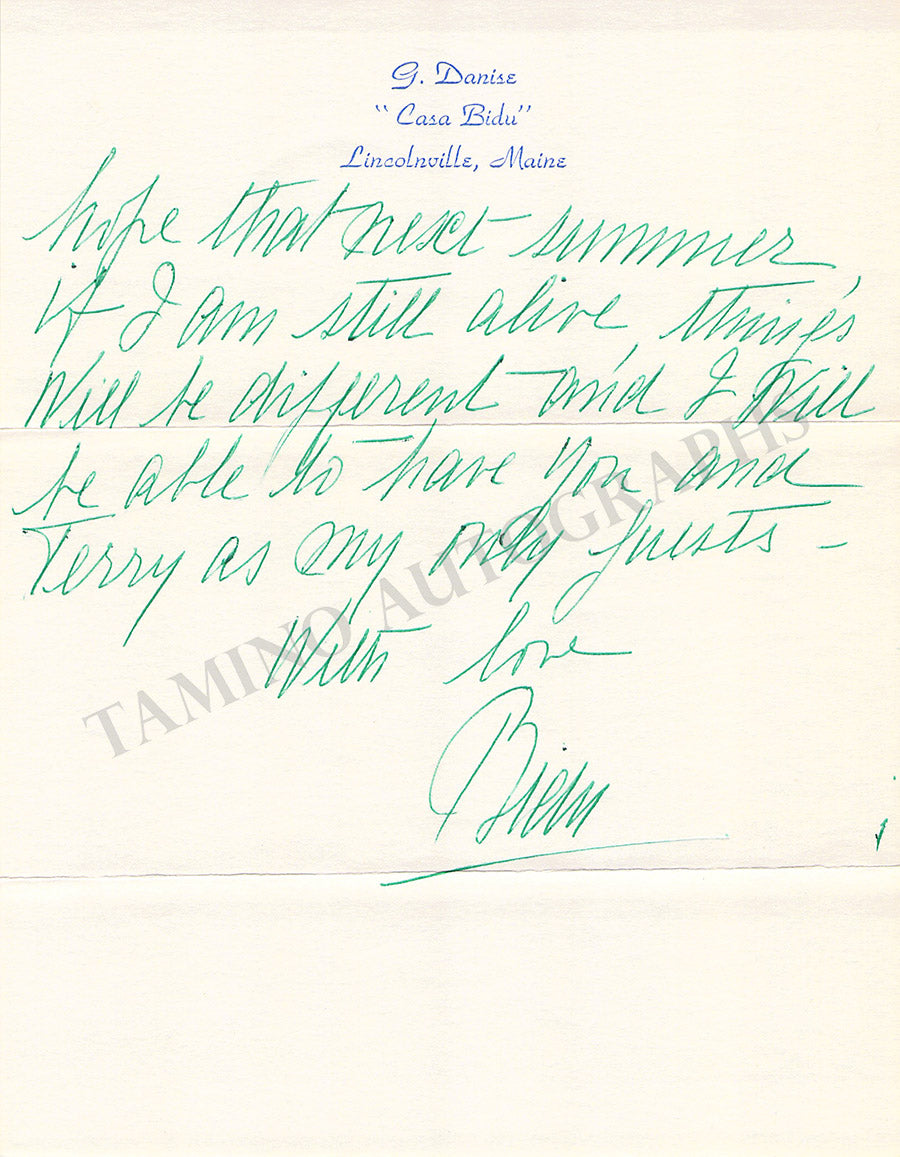 G. Danise
"Casa Bidu"
Lincolnville, Maine
hope that next summer,
if I am still alive, things
Will be different and I Will
be able to have You and
Terry as my only guests –
With love
Bidu
TAMINO AUTOGRAPHS